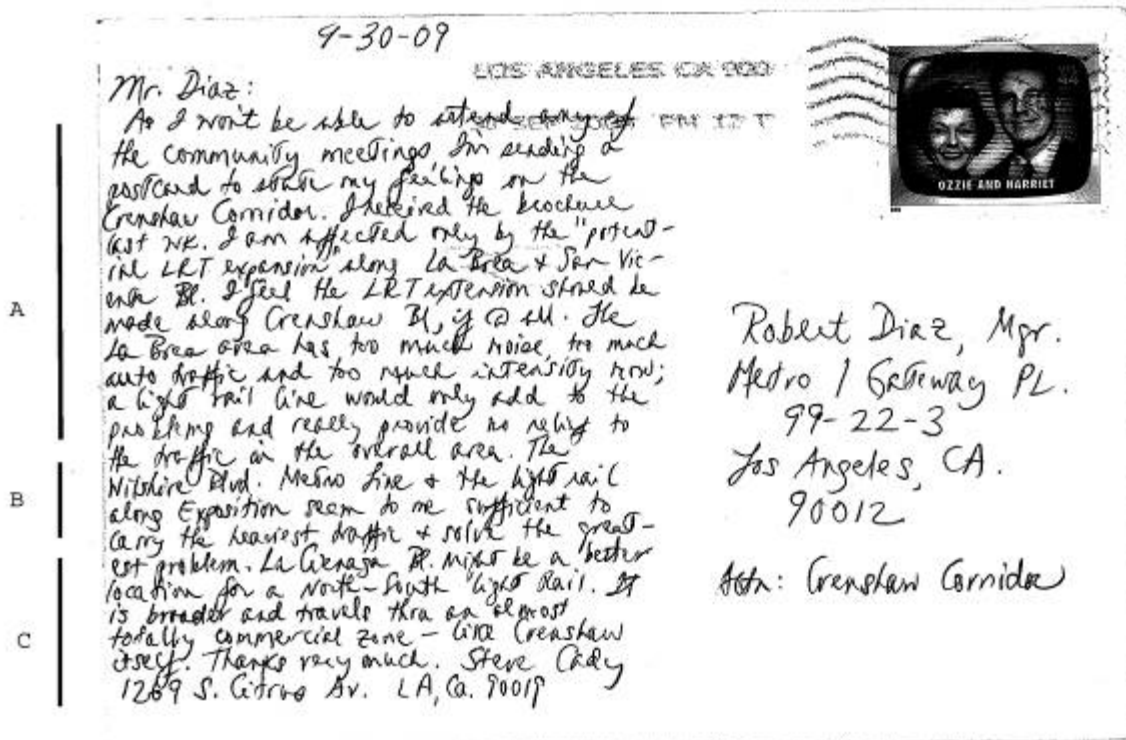 9-30-09
LOS ANGELES CA 900
30 SEP 2009 PM 12 T
OZZIE AND HARRIET
Mr. Diaz:
As I won't be able to attend any of
the community meetings, I'm sending a
postcard to state my feelings on the
Crenshaw Corridor. I received the brochure
last wk. I am affected only by the "potent-
ial LRT expansion" along La Brea + San Vic-
ente Bl. I feel the LRT extension should be
made along Crenshaw Bl, if @ all. The
La Brea area has too much noise, too much
auto traffic and too much intensity now;
a light rail line would only add to the
problems and really provide no relief to
the traffic in the overall area. The
Wilshire Blvd. Metro Line + the light rail
along Exposition seem to me sufficient to
carry the heaviest traffic + solve the great-
est problem. La Cienaga Bl. might be a better
location for a North-South light Rail. It
is broader and travels thru an almost
totally commercial zone - like Crenshaw
itself. Thanks very much. Steve Cady
1269 S. Citrus Av. LA, Ca. 90019
A
B
C
Robert Diaz, Mgr.
Metro 1 Gateway PL.
99-22-3
Los Angeles, CA.
90012
Attn: Crenshaw Corridor